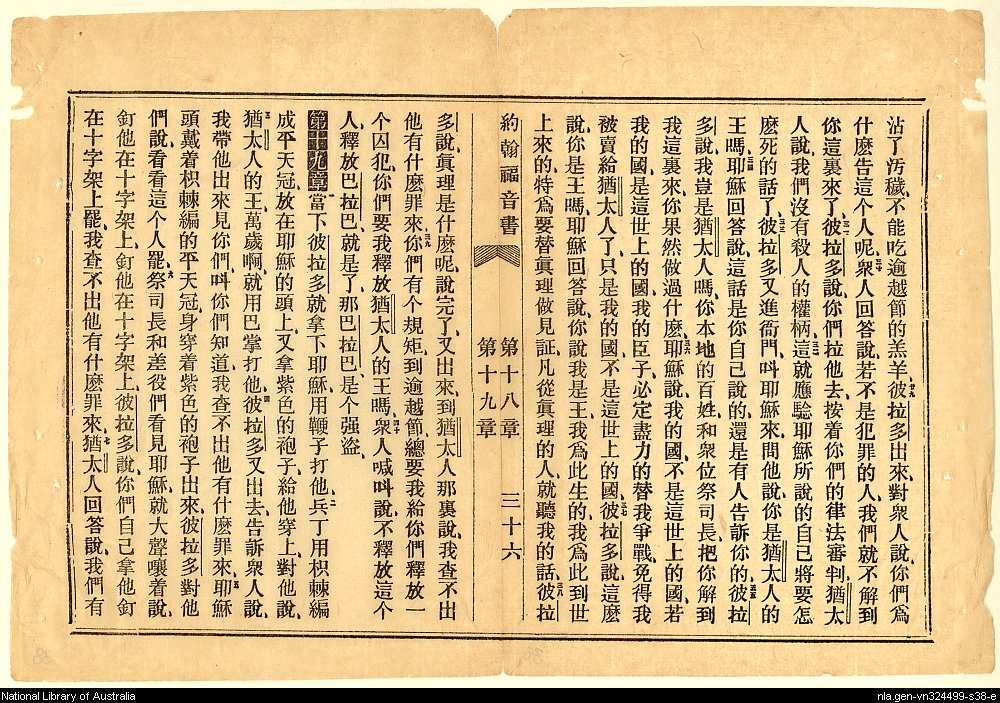 沾了汚穢、不能吃逾越節的羔羊、彼拉多出來對衆人說、你們爲
什麽告這个人呢、衆人回答說、若不是犯罪的人、我們就不解到
你這裏來了、彼拉多說、你們拉他去、按着你們的律法審判、猶太
人說、我們沒有殺人的權柄、這就應驗耶穌所說的自己將要怎
麽死的話了、彼拉多又進衙門、呌耶穌來、問他說、你是猶太人的
王嗎、耶穌回答說、這話是你自己說的、還是有人告訴你的、彼拉
多說、我豈是猶太人嗎、你本地的百姓、和衆位祭司長、把你解到
我這裏來、你果然做過什麽、耶穌說、我的國不是這世上的國、若
我的國、是這世上的國、我的臣子、必定盡力的替我爭戰、免得我
被賣給猶太人了、只是我的國、不是這世上的國、彼拉多說、這麽
說、你是王嗎、耶穌回答說、你說我是王、我爲此生的、我爲此到世
上來的、特爲要替眞理做見証、凡從眞理的人、就聽我的話、彼拉
約翰福音書 第十八章 第十九章 三十六
多說、眞理是什麽呢、說完了、又出來、到猶太人那裏說、我查不出
他有什麽罪來、你們有个規矩、到逾越節、總要我給你們釋放一
个囚犯、你們要我釋放猶太人的王嗎、衆人喊呌說、不釋放這个
人、釋放巴拉巴、就是了、那巴拉巴、是个强盜、
第十九章 當下彼拉多就拿下耶穌、用鞭子打他、兵丁用枳棘編
成平天冠、放在耶穌的頭上、又拿紫色的袍子、給他穿上、對他說、
猶太人的王萬歲啊、就用巴掌打他、彼拉多又出去告訴衆人說、
我帶他出來見你們、呌你們知道、我查不出他有什麽罪來、耶穌
頭戴着枳棘編的平天冠、身穿着紫色的袍子出來、彼拉多對他
們說、看看這个人罷、祭司長和差役們看見耶穌、就大聲嚷着說、
釘他在十字架上、釘他在十字架上、彼拉多說、你們自己拿他釘
在十字架上罷、我查不出他有什麽罪來、猶太人回答說、我們有
National Library of Australia
nla.gen-vn324499-s38-e